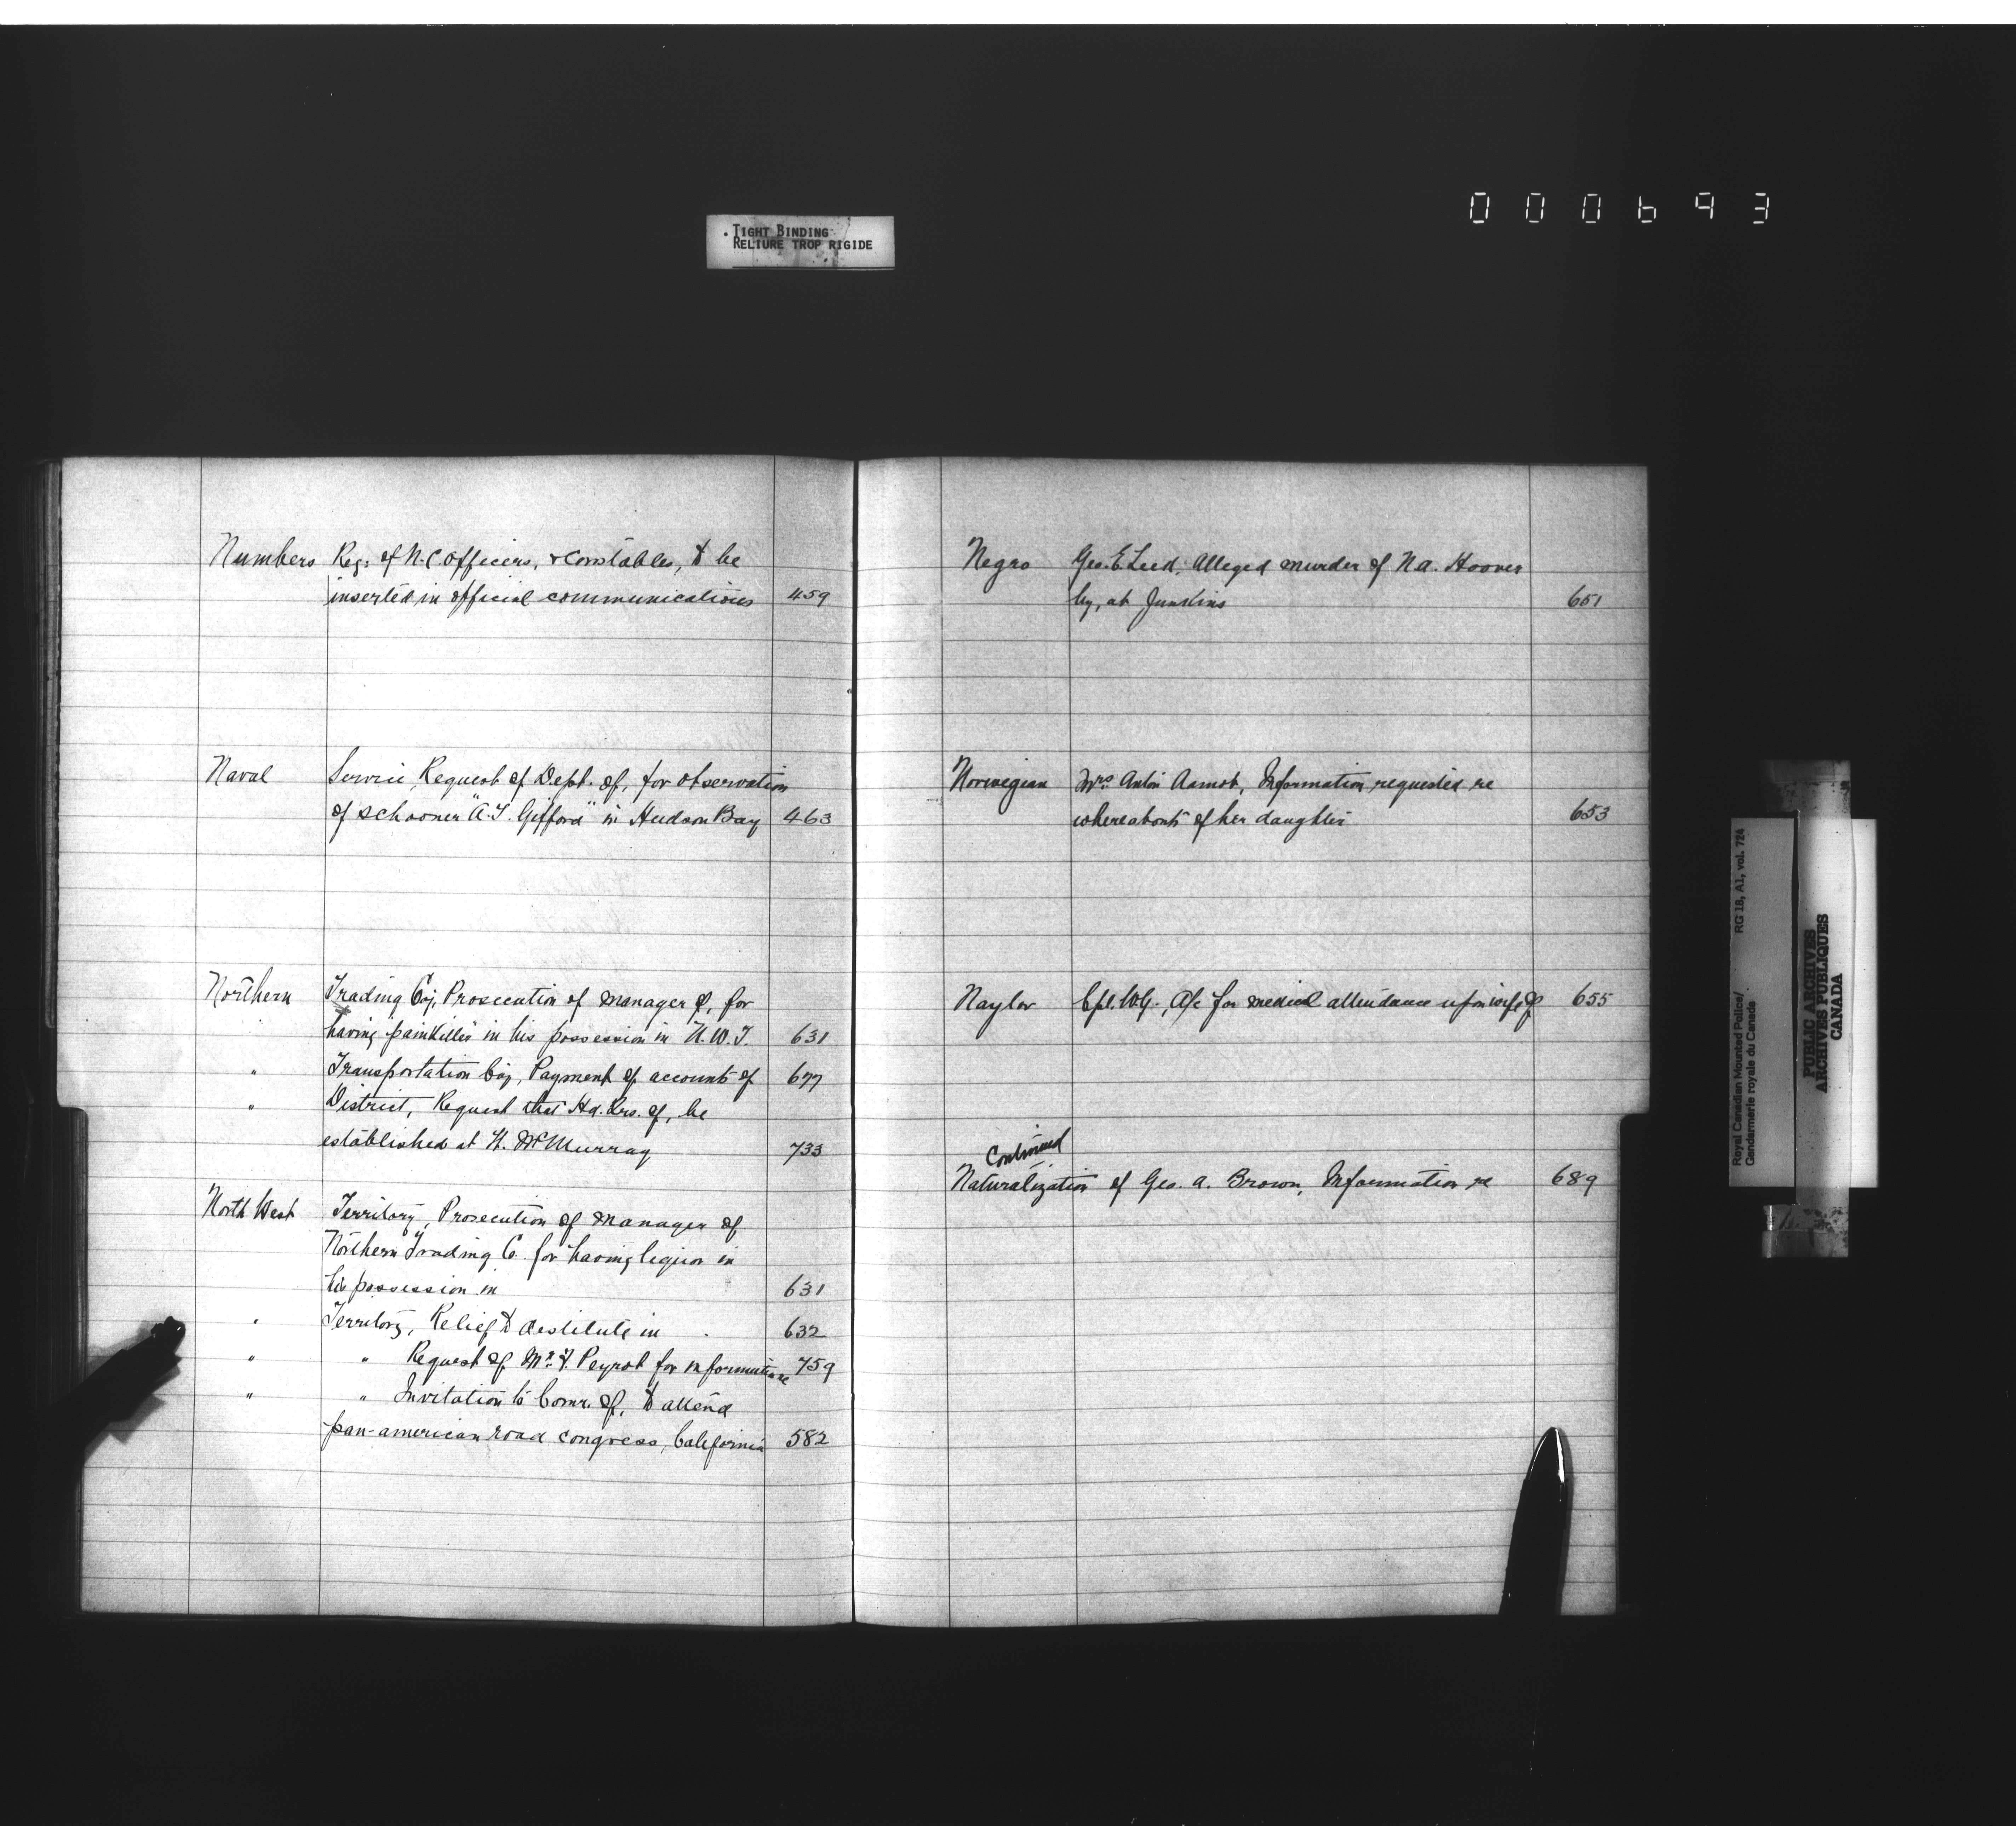 000693
TIGHT BINDING
RELIURE TROP RIGIDE
Numbers Reg. of N.C. Officers, & Constables, to be
inserted in official communications 459
Naval Service, Request of Dept. of, for observation
of schooner "A.T. Gifford" in Hudson Bay 463
Northern Trading Coy, Prosecution of manager of, for
having painkiller in his possession in N.W.T. 631
" Transportation Coy, Payment of accounts of 677
" District, Request that Hd. Qrs. of, be
established at Ft. McMurray 733
North West Territory, Prosecution of Manager of
Northern Trading Co. for having liquor in
his possession in 631
" Territory, Relief to destitute in 632
" " Request of Mr. F. Peyrot for information re 759
" " Invitation to Comr. of, to attend
pan-american road congress, California 582
Negro Geo. E. Leed, Alleged murder of N.A. Hoover
by, at Junkins 651
Norwegian Mrs. Anton Aamot, Information requested re
whereabouts of her daughter 653
Naylor Cpl. W.G., A/c for medical attendance upon wife of 655
Continued
Naturalization of Geo. A. Brown, Information re 689
Royal Canadian Mounted Police/ RG 18, A1, vol. 724
Gendarmerie royale du Canada
PUBLIC ARCHIVES
ARCHIVES PUBLIQUES
CANADA